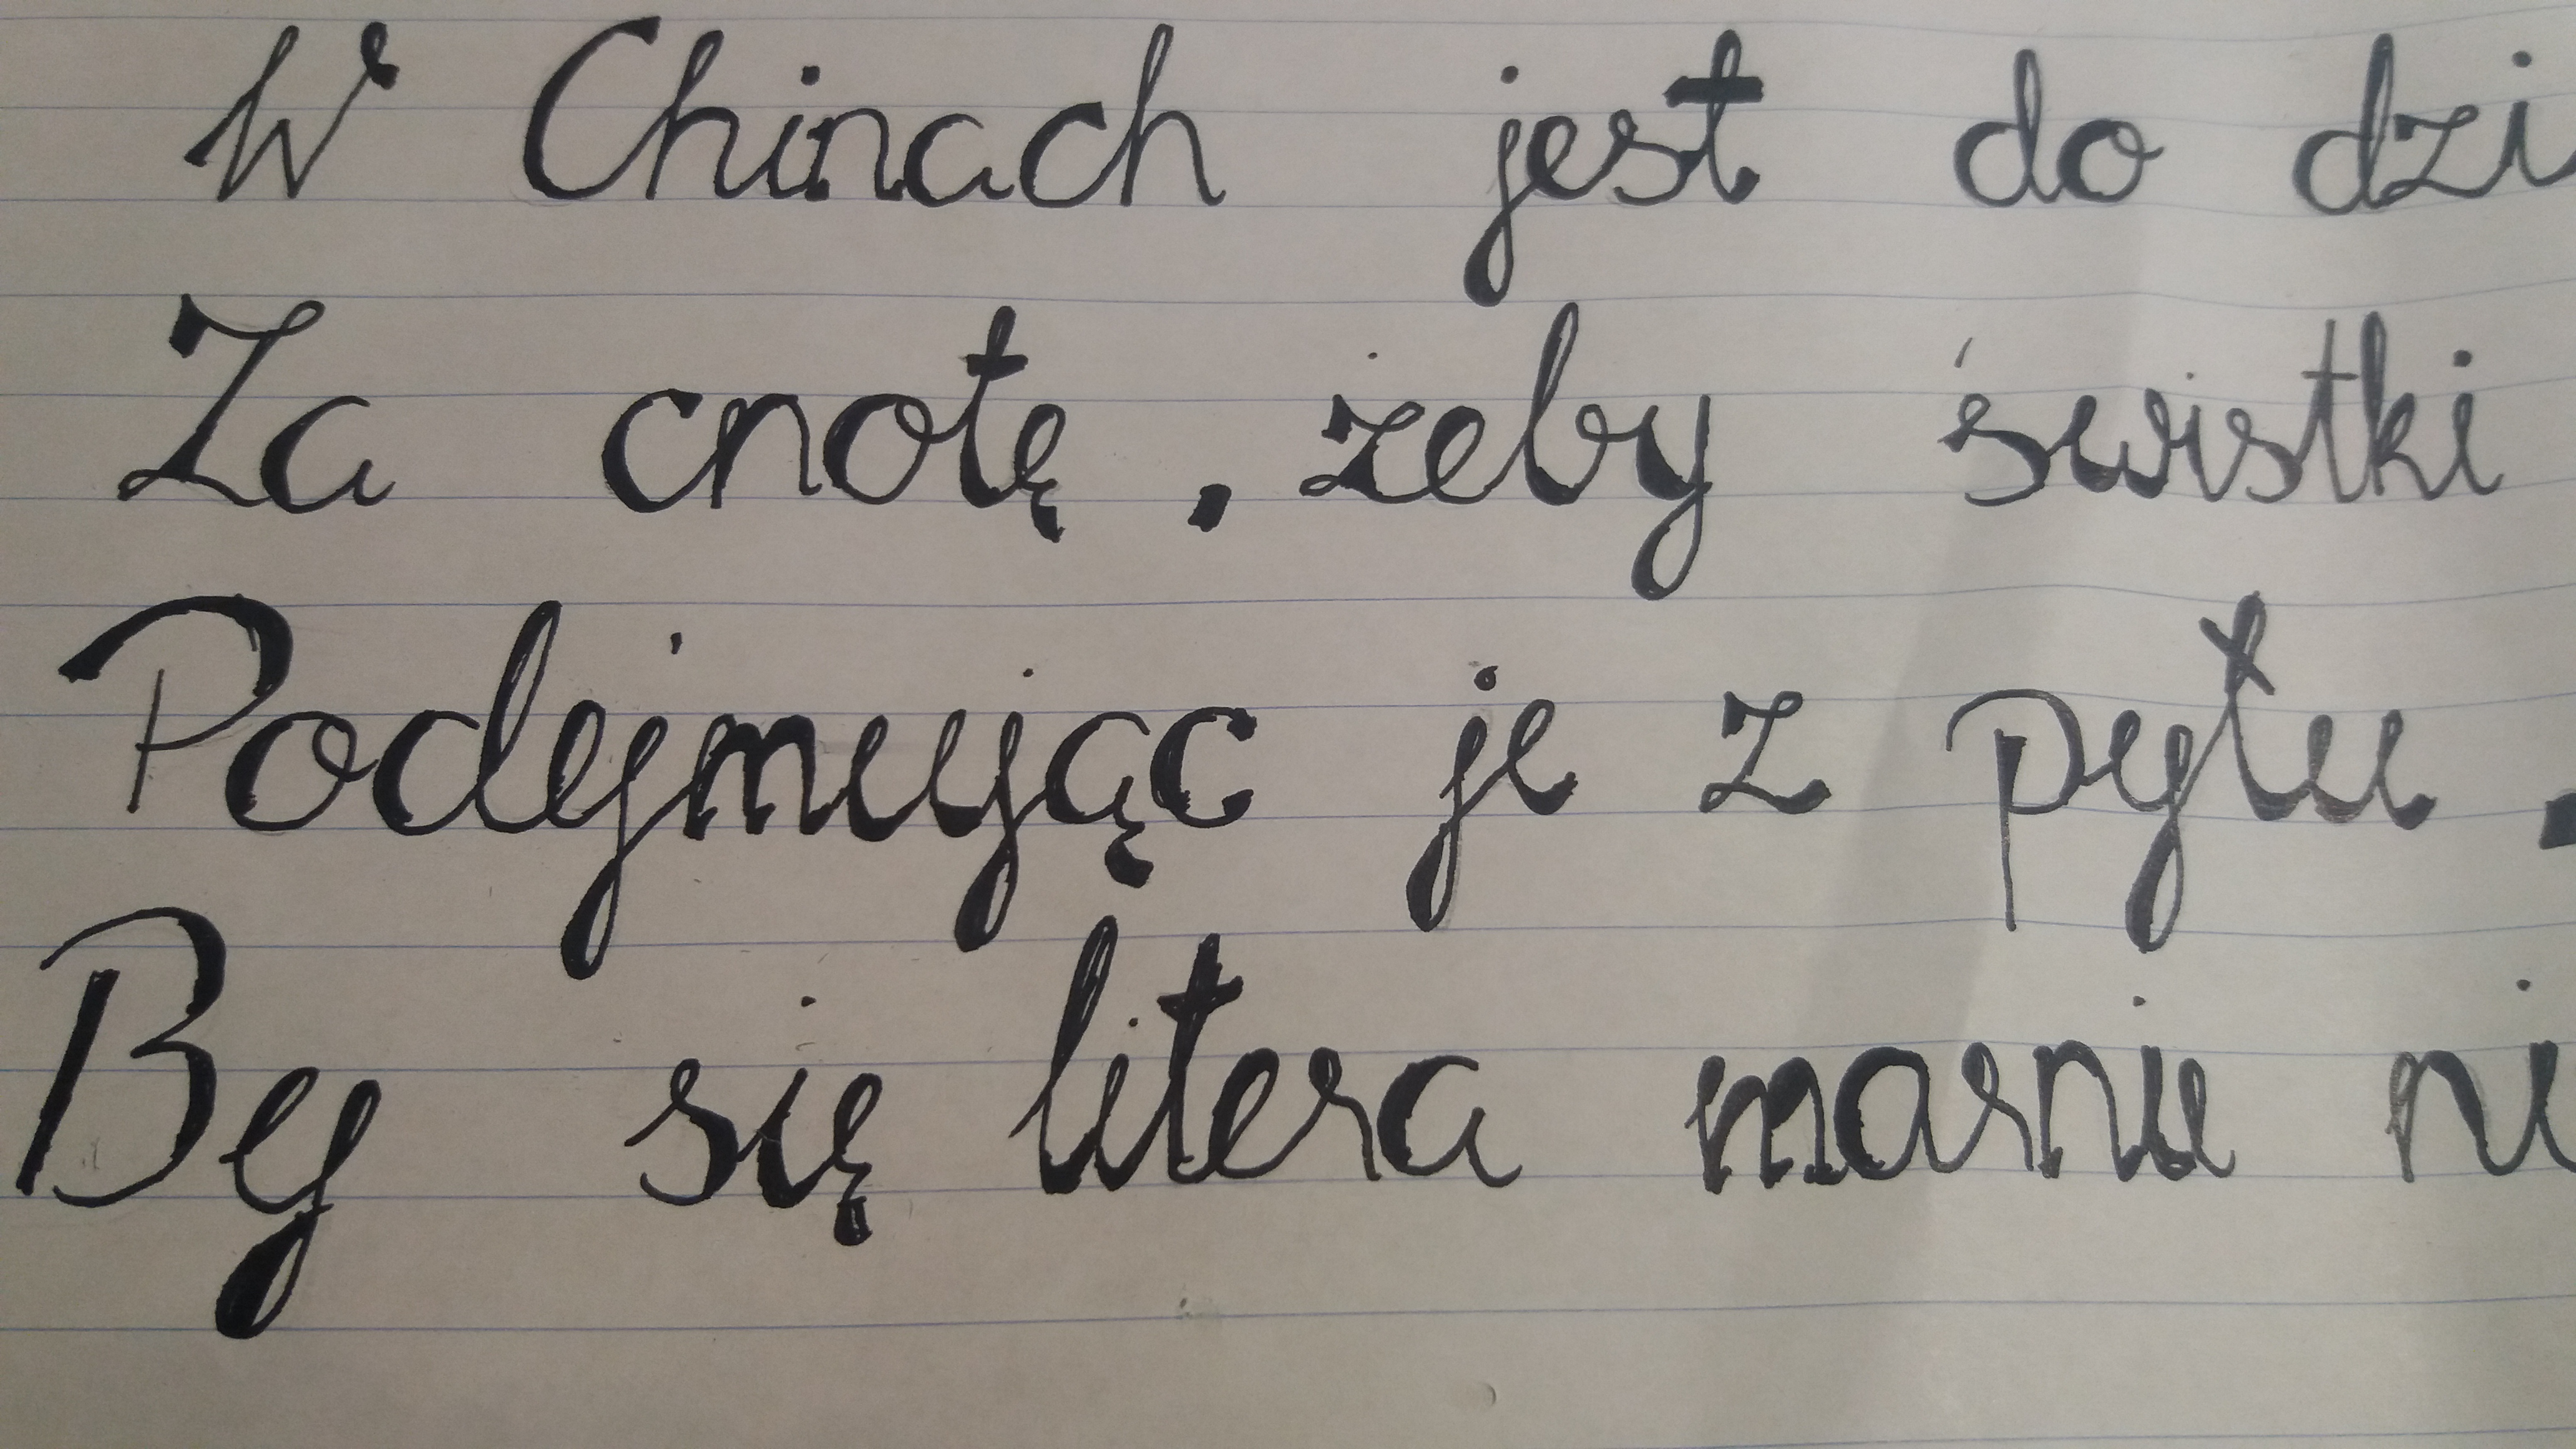 W Chinach jest do dzi
Za cnotę, żeby świstki
Podejmując je z pyłu,
By się litera marnie ni